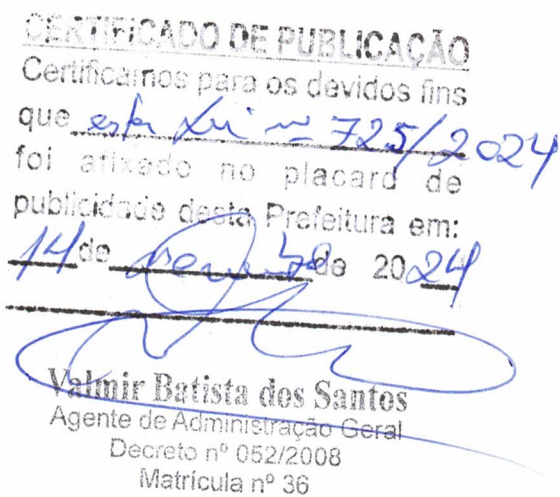 CERTIFICADO DE PUBLICAÇÃO
Certificamos para os devidos fins
que esta Lei nº 725/2024
foi afixado no placard de
publicidade desta Prefeitura em:
14 de de 2024
Valmir Batista dos Santos
Agente de Administração Geral
Decreto nº 052/2008
Matrícula nº 36